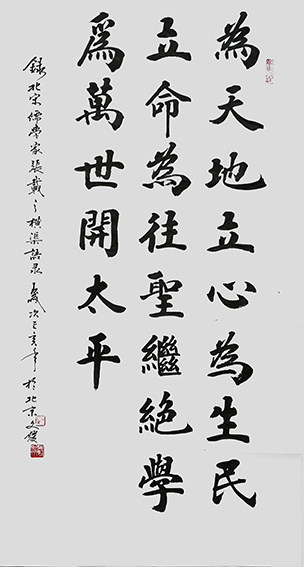 為天地立心為生民
立命為往聖繼絕學
爲萬世開太平
錄北宋儒學家張載之橫渠語录歲次己亥年於北京